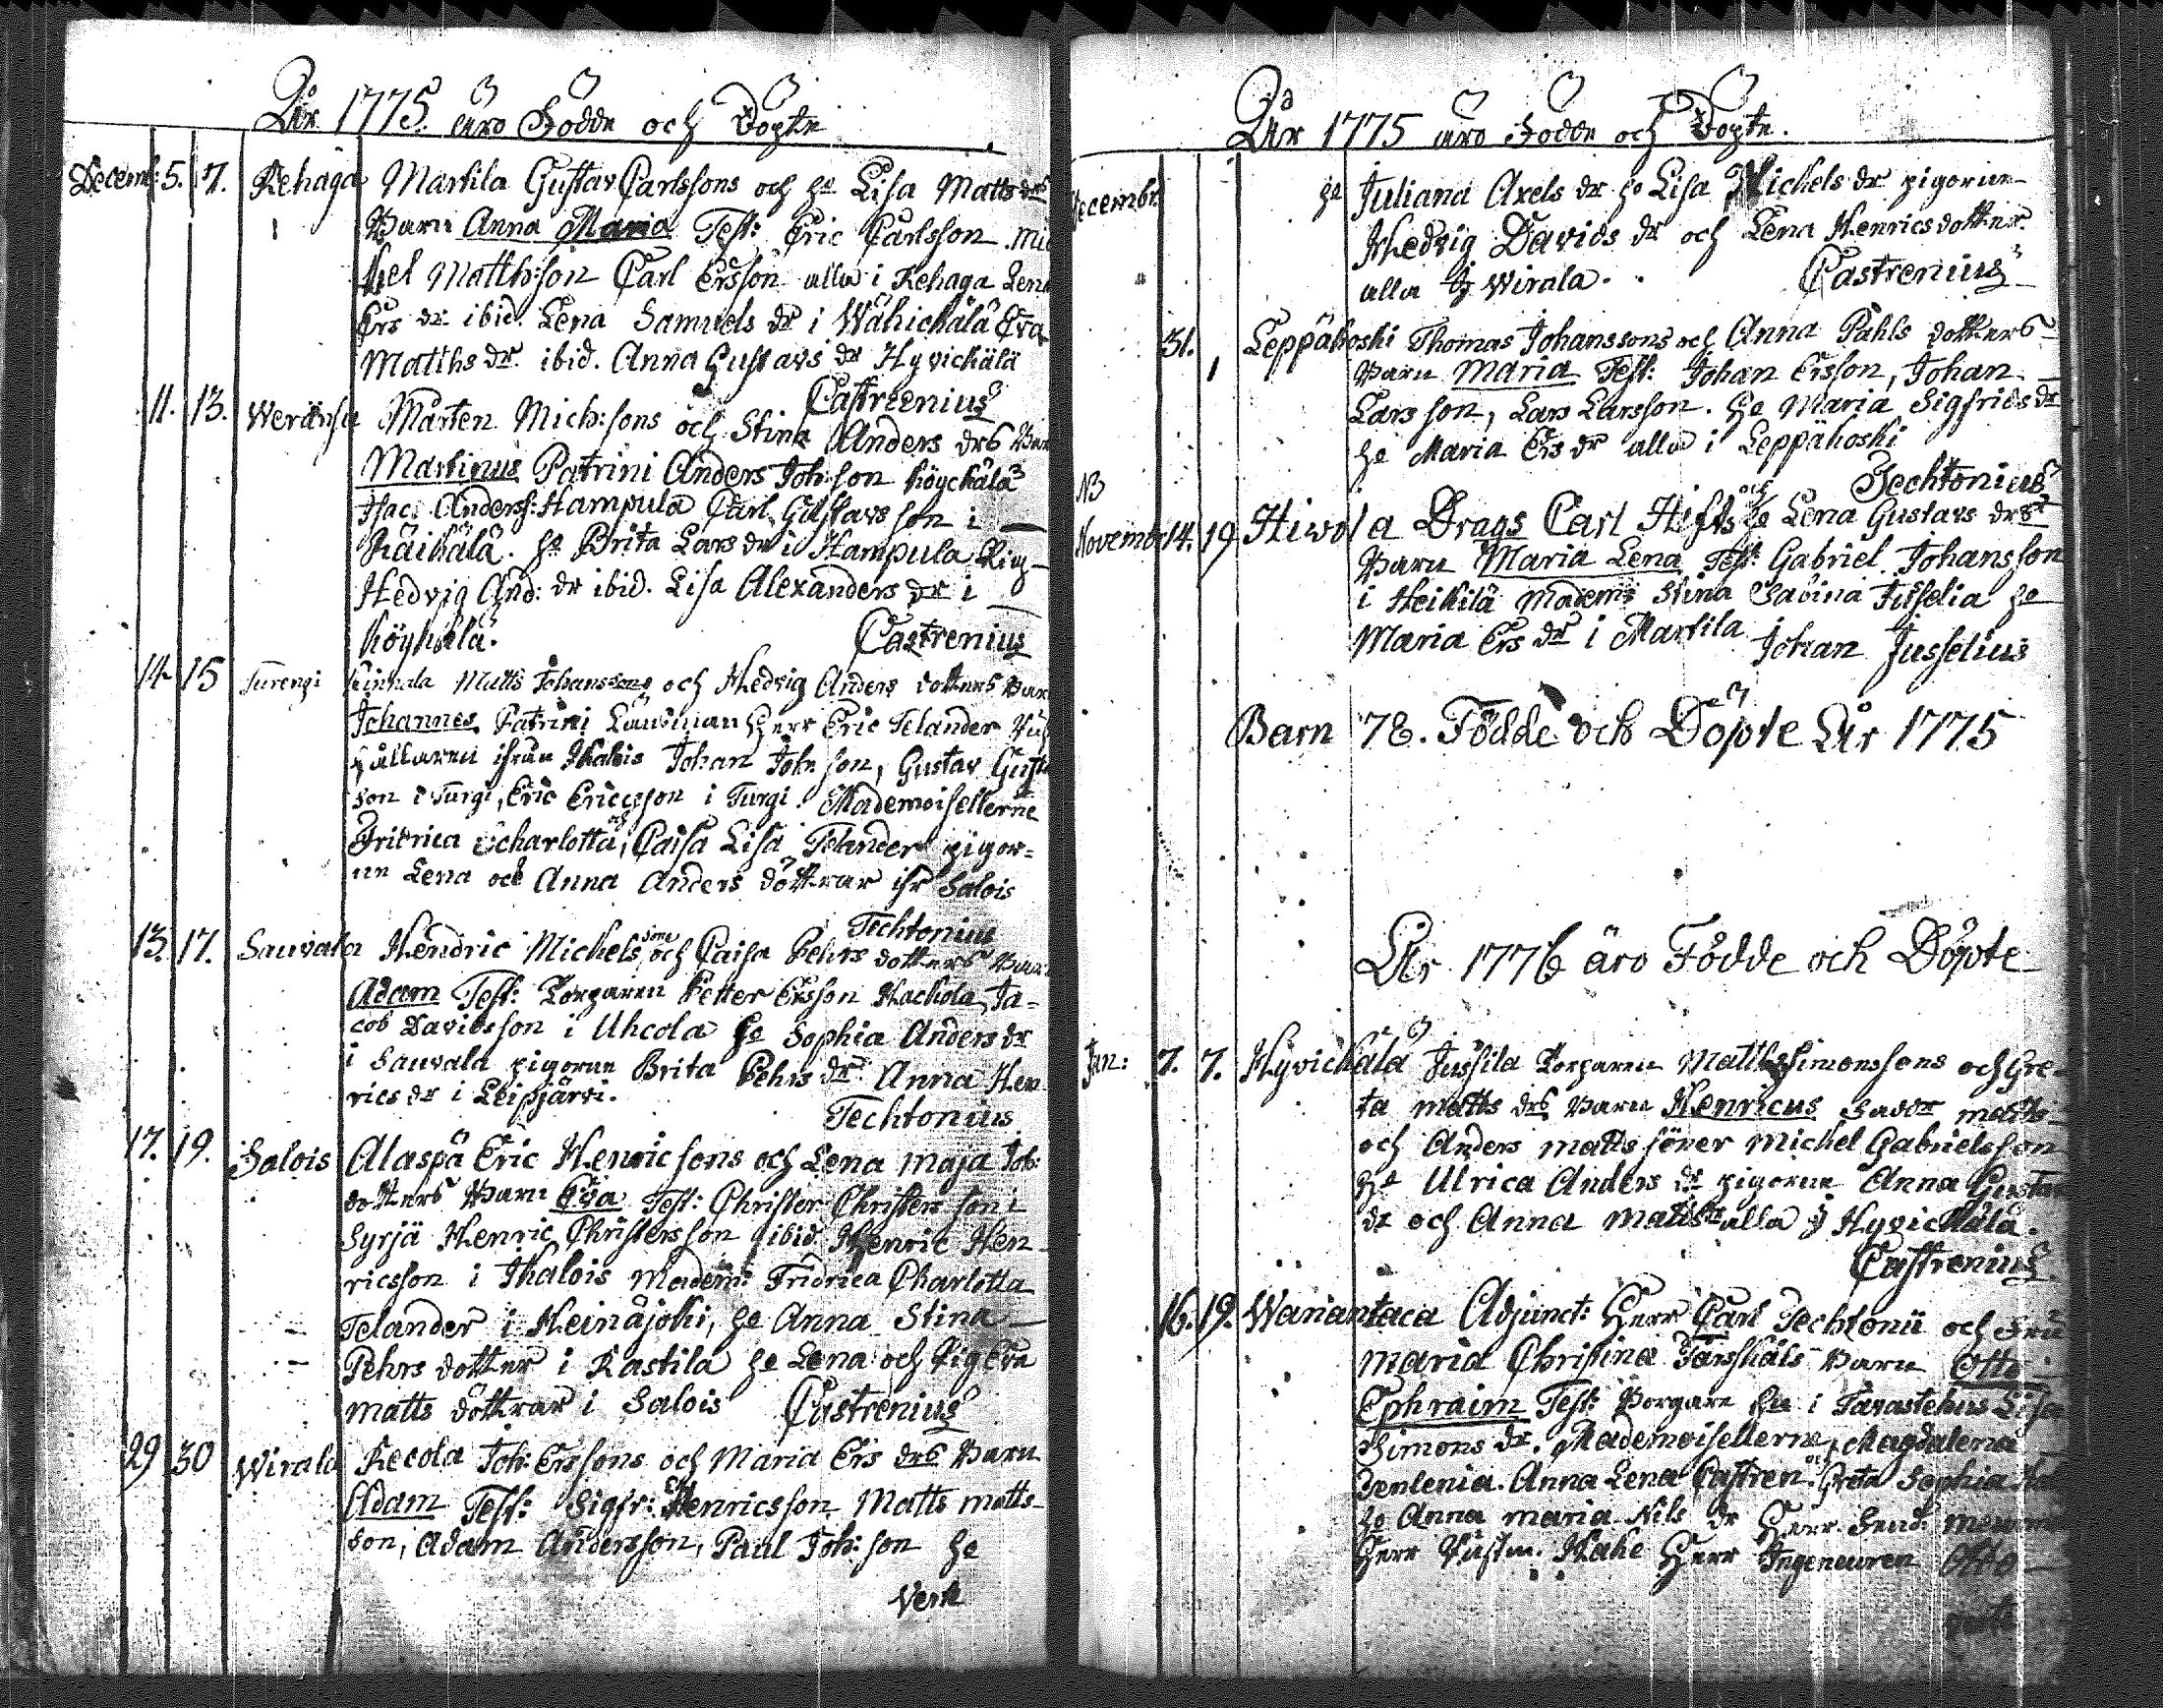 År 1775. äro Födde och Döpte
Decemb: 5. 7. Rehaga Martila Gustav Carlssons och h:o Lisa Matts drs
Barn Anna Maria Test: Eric Carlsson. Mic
kel Matth:son Carl Ersson alla i Rehaga Lena
Ers dr ibid. Lena Samuels dr i Wähickälä Eva
Matths dr. ibid. Anna Gustavs dr Hyvickälä
Castrenius
11. 13. Mårten Mich:sons och Stina Anders drs Barn
Martinus Patrini Anders Joh:son Köyckälä
Isac Anderss: Hampula Carl Gustavsson i
Räikälä. h:o Brita Lars dr i Hampula Pig
Hedvig And: dr ibid. Lisa Alexanders dr i
Köykälä. Castrenius
14 15 Turengi Matts Johanssons och Hedvig Anders dotters Barn
Johannes Patrini Länsman Herr Eric Telander
ifrån Ihalois Johan Joh:son, Gustav Gust
son i Turgi, Eric Ericsson i Turgi. Mademoisellerne
Fridrica Scharlotta, och Caisa Lisa Telander pigor=
ne Lena och Anna Anders döttrar ifr Salois
Techtonius
13. 17. Sauvala Hendric Michelssons och Caisa Pehrs dotters Barn
Adam Test: Torparen Petter Ersson Hackola, Ja=
cob Davidsson i Uhcola h:o Sophia Anders dr
i Sauvala pigorne Brita Pehrs dr Anna Hen
rics dr i Leipjärvi.
Techtonius.
17. 19. Salois Alaspä Eric Henricsons och Lena Maja Joh:
dotters Barn Eva Test: Christer Christersson i
Syrjä Henric Christersson ibid. Henric Hen
ricsson i Ihalois Madem: Fridrica Charlotta
Telander i Heinäjoki, h:o Anna Stina
Pehrs dotter i Rastila h:o Lena och Pig Eva
Matts döttrar i Salois Castrenius
29 30 Wirala Recola Joh: Erssons och Maria Ers drs Barn
Adam Test: Sigfr: Henricsson, Matts Matts
son, Adam Andersson, Paul Joh:son h:o
Vert
År 1775 äro Födde och Döpte.
Decembr. h:o Juliana Axels dr h:o Lisa Michels dr pigorne
Hedvig Davids dr och Lena Henricsdotter.
alla i Wirala. Castrenius
31. Leppäkoski Thomas Johanssons och Anna Påhls dotters
Barn Maria Test: Johan Ersson, Johan
Larsson, Lars Larsson. h:o Maria Sigfrids dr
h:o Maria Ers dr alla i Leppäkoski
Techtonius
NB
Novembr 14. 19 Hiwola Drags Carl Hifts och h:o Lena Gustavs drs
Barn Maria Lena Test: Gabriel Johansson
i Heikilä Madem: Stina Sabina Juselia h:o
Maria Ers dr i Martila Johan Jusselius
Barn 78. Födde och Döpte År 1775
År 1776 äro Födde och Döpte
Jan: 7. 7. Hyvickälä Jussila Torparen Matts Simonssons och Gre
ta Matts drs Barn Henricus Matts
och Anders Matts söner Michel Gabrielsson
h:o Ulrica Anders dr pigorne Anna Gustav
dr och Anna Matts dr alla i Hyvickälä.
Castrenius
16. 19. Wanantaca Adjunct: Herr Carl Techtonii och Fru
Maria Christina Barn Otto
Ephraim Test: i Tavastehus Lisa
Simons dr. Mademoisellerne, Magdalena
Anna Lena Castren. och Greta Sophia
h:o Anna Maria Nils dr Herr
Herr Herr Ingeneuren Otto